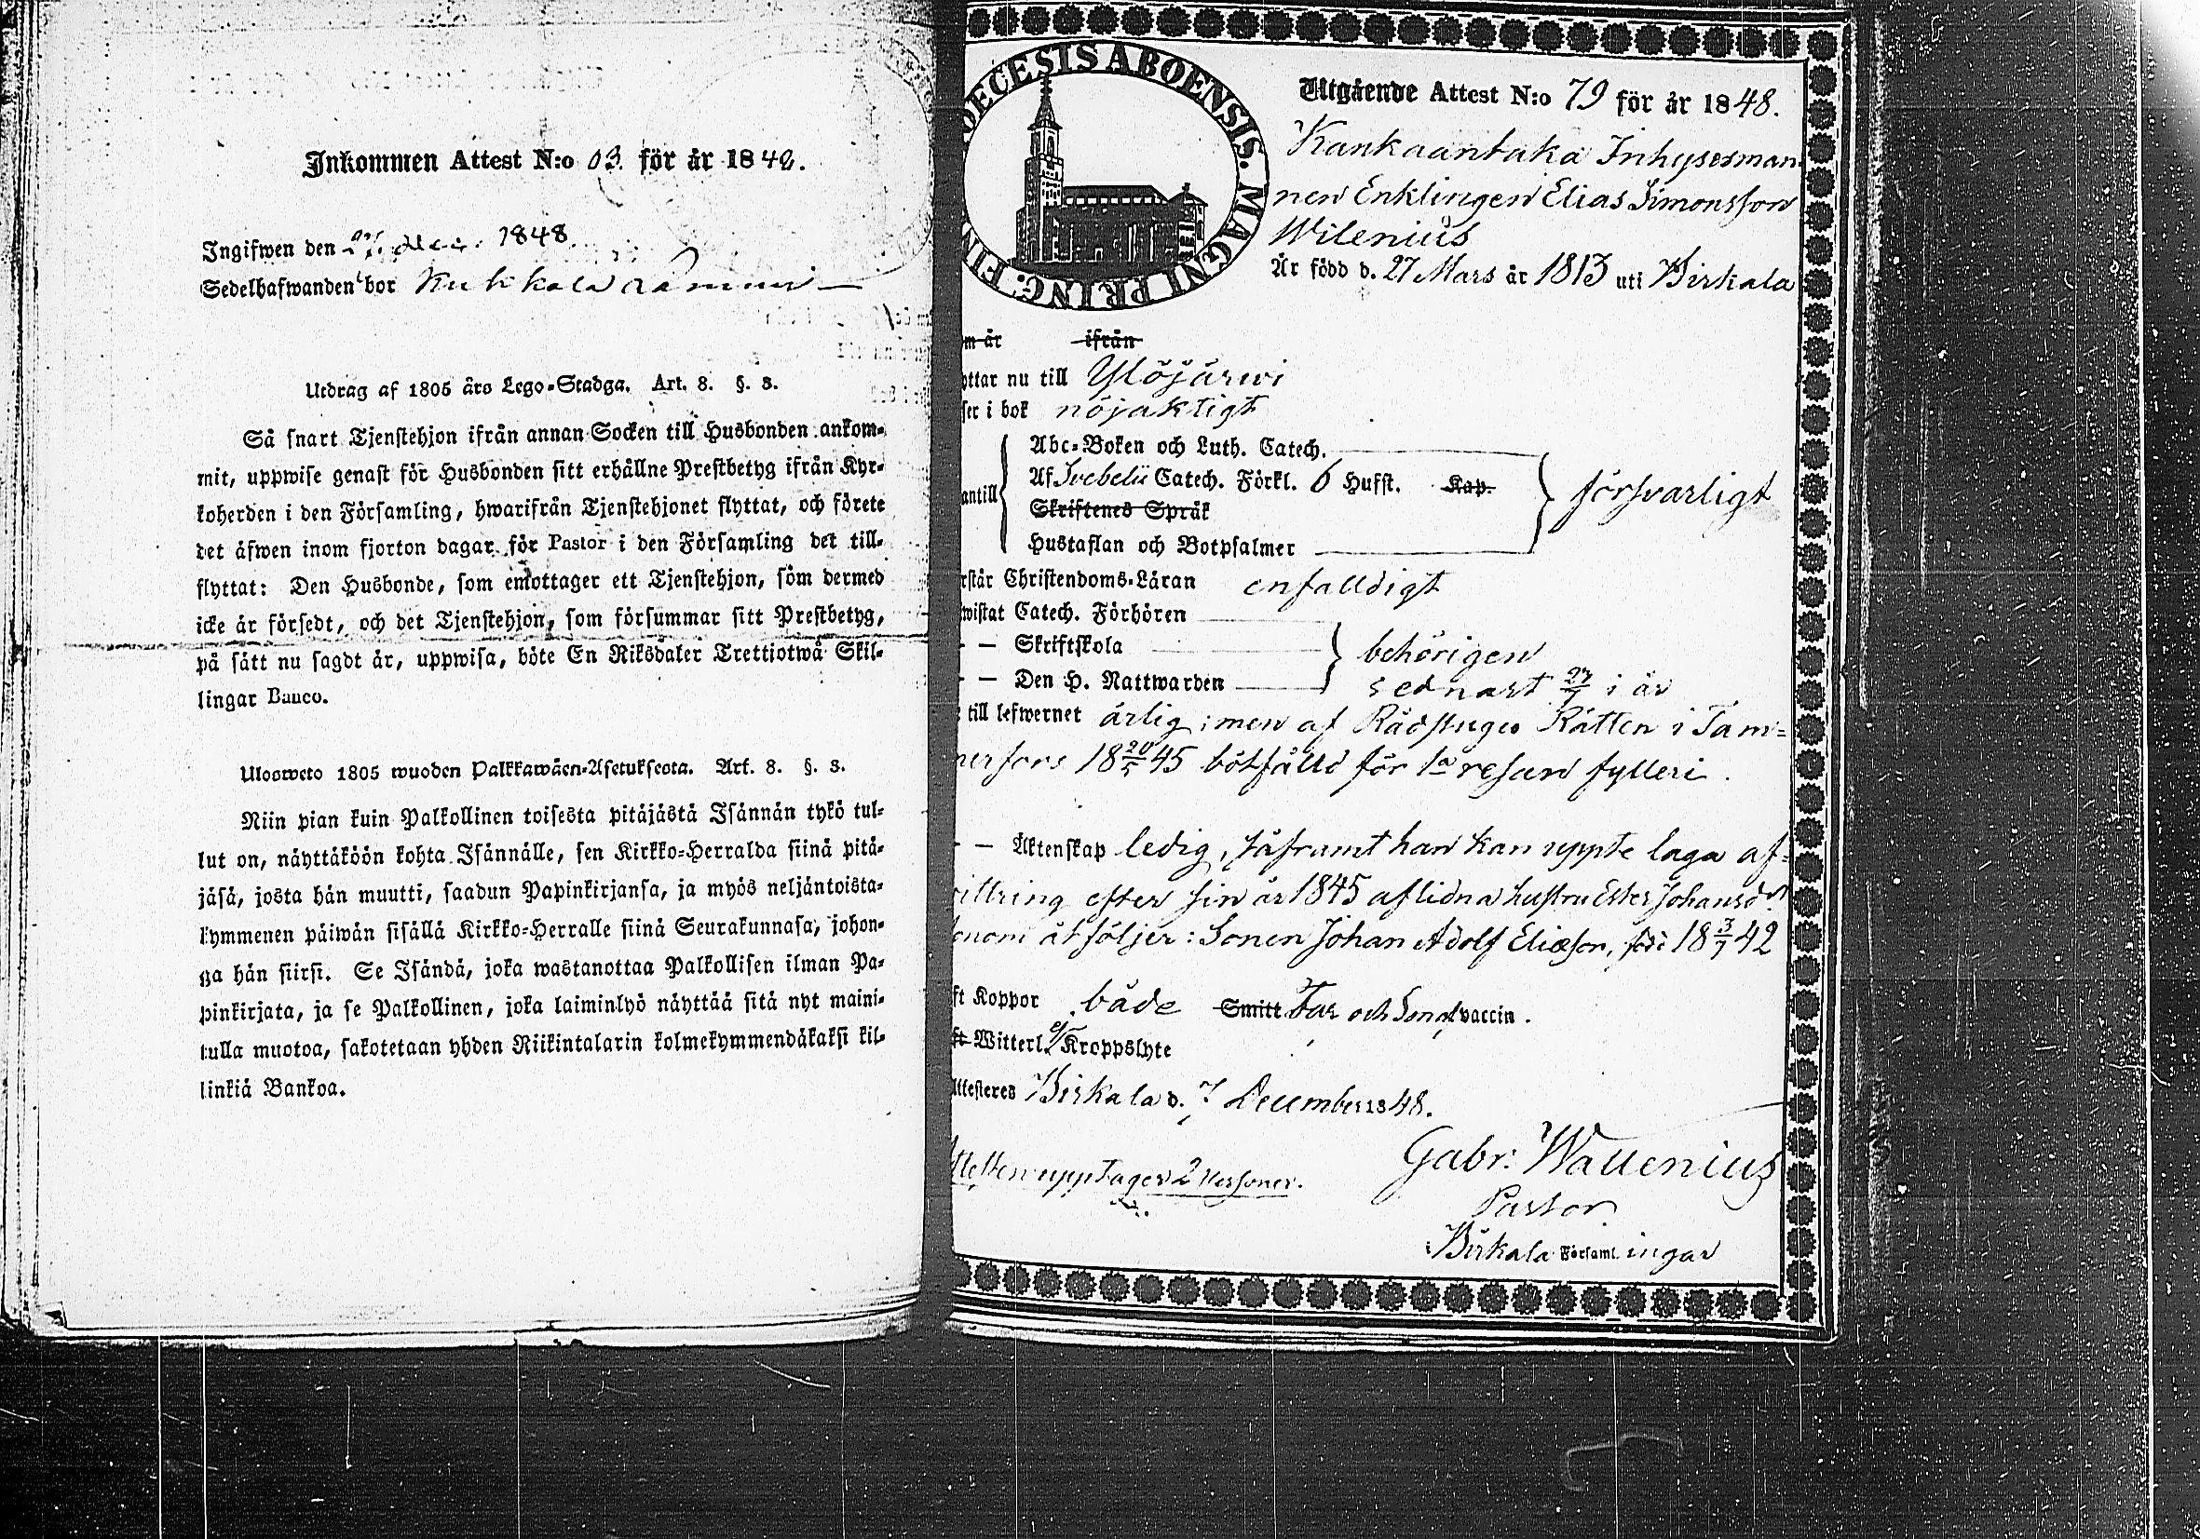 Inkommen Attest N:o 03. för år 1848.
Ingifwen den 27 Dec. 1848.
Sedelhafwanden bor
Utdrag af 1805 års Lego-Stadga. Art. 8. §. 3.
Så snart Tjenstehjon ifrån annan Socken till Husbonden ankom-
mit, uppwise genast för Husbonden sitt erhållne Prestbetyg ifrån Kyr-
koherden i den Församling, hwarifrån Tjenstehjonet flyttat, och förete
det äfwen inom fjorton dagar för Pastor i den Församling det till-
flyttat: Den Husbonde, som emottager ett Tjenstehjon, som dermed
icke är försedt, och det Tjenstehjon, som försummar sitt Prestbetyg,
på sätt nu sagdt är, uppwisa, böte En Riksdaler Trettiotwå Skil-
lingar Banco.
Ulosweto 1805 wuoden Palkkawäen-Asetuksesta. Art. 8. §. 3.
Niin pian kuin Palkollinen toisesta pitäjästä Isännän tykö tul-
lut on, näyttäköön kohta Isännälle, sen Kirkko-Herralda siinä pitä-
jäsä, josta hän muutti, saadun Papinkirjansa, ja myös neljäntoista-
kymmenen päiwän sisällä Kirkko-Herralle siinä Seurakunnasa, johon-
ga hän siirsi. Se Isändä, joka wastanottaa Palkollisen ilman Pa-
pinkirjata, ja se Palkollinen, joka laiminlyö näyttää sitä nyt maini-
tulla muotoa, sakotetaan yhden Riikintalarin kolmekymmendäkaksi kil-
linkiä Bankoa.
DECESIS ABOENSIS. MAGNI PRING. FIN
Utgående Attest N:o 79 för år 1848.
Kankaantaka Inhysesman-
nen Enklingen Elias Simonsson
Wilenius
Är född d. 27 Mars år 1813 uti Birkala
m år ifrån
yttar nu till Ylöjärwi
ser i bok nöjaktigt
Abc-Boken och Luth. Catech.
antill Af Svebelii Catech. Förkl. 6 Hufst. Kap. försvarligt
Skriftenes Språk
Hustaflan och Botpsalmer
rstår Christendoms-Läran enfalldigt
wistat Catech. Förhören
- - Skriftskola behörigen
- - Den H. Nattwarden sednast 27/ i år
till lefwernet ärlig; men af Rådstugu Rätten i Tam-
nerfors 18 20/5 45 bötfälld för 1a resan fylleri.
- - Äktenskap ledig, såframt han kan uppte laga af-
vittring efter sin år 1845 aflidna hustru Ester Johansdr.
onom åtföljer: Sonen Johan Adolf Eliasson, född 18 3/7 42
ft Koppor både Smitt Far och Son vaccin.
ft Witterl. Kroppslyte
Attesteres Birkala d. 7 December 1848.
Attesten upptager 2 Personer.
Gabr: Wallenius
Pastor
Birkala Församl. ingar